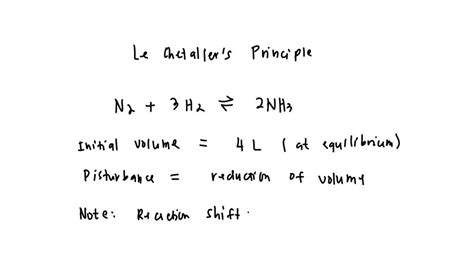 Le Chetaller's Principle
N2 + 3H2 ⇌ 2NH3
Initial volume = 4 L ( at equilibrium )
Disturbance = reduction of volume
Note: Reaction shift